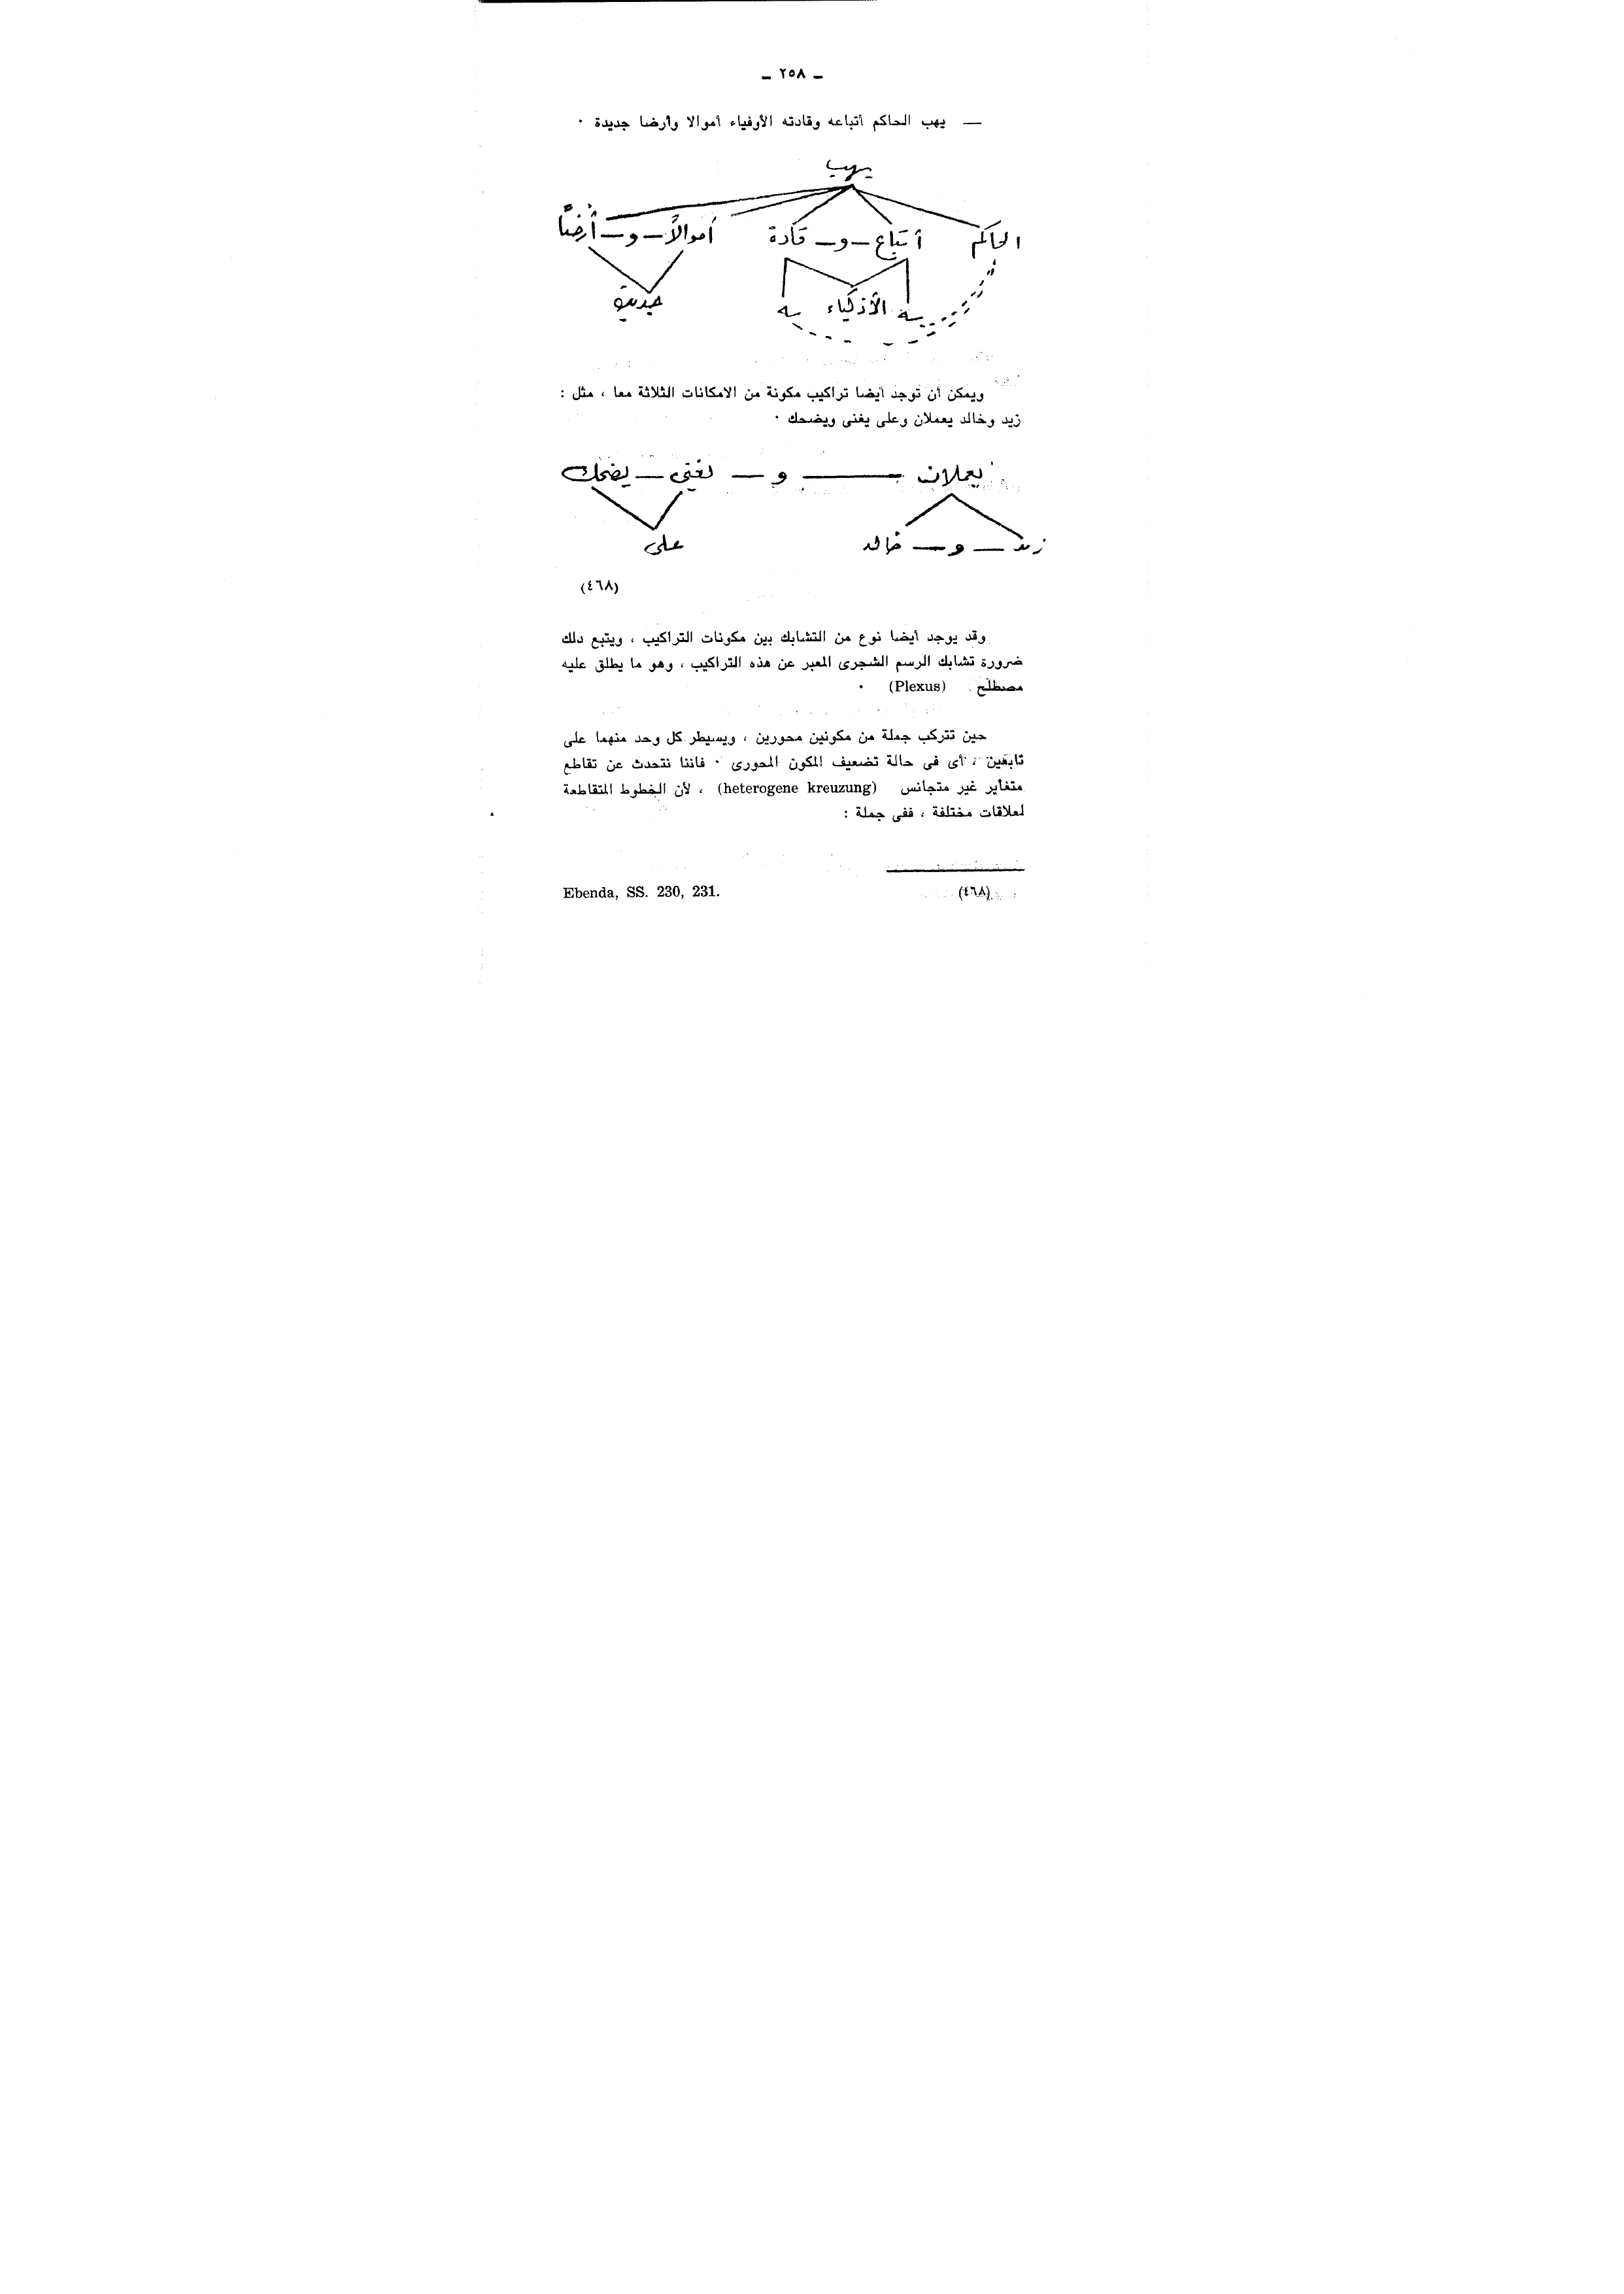 ـ ٢٥٨ ـ
— يهب الحاكم أتباعه وقادته الأوفياء أموالا وأرضا جديدة ٠
يهب
الحاكم أتباع – و – قادة أموالاً – و – أرضاً
ـه الأذكياء ـه جديدة
ويمكن أن توجد أيضا تراكيب مكونة من الامكانات الثلاثة معا ، مثل :
زيد وخالد يعملان وعلى يغنى ويضحك ٠
يعملان — و — يغنى – يضحك
زيد – و – خالد على
(٤٦٨)
وقد يوجد أيضا نوع من التشابك بين مكونات التراكيب ، ويتبع دلك
ضرورة تشابك الرسم الشجرى المعبر عن هذه التراكيب ، وهو ما يطلق عليه
مصطلح (Plexus) ٠
حين تتركب جملة من مكونين محورين ، ويسيطر كل وحد منهما على
تابعين ، أى فى حالة تضعيف المكون المحورى ٠ فاننا نتحدث عن تقاطع
متغاير غير متجانس (heterogene kreuzung) ، لأن الخطوط المتقاطعة
لعلاقات مختلفة ، ففى جملة :
(٤٦٨) Ebenda, SS. 230, 231.